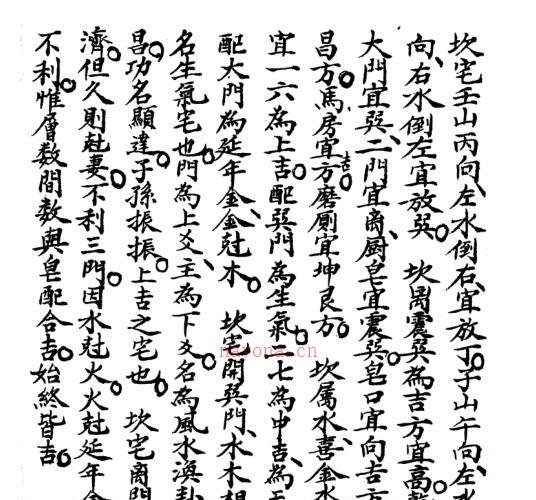 坎宅壬山丙向、左水倒右、宜放丁。子山午向、左水
向、右水倒左宜放巽。坎离震巽為吉方宜高
大門宜巽、二門宜离、厨皂宜震巽。皂口宜向吉方
昌方。馬房宜吉方磨厠宜坤艮方。坎属水喜金水
宜一六為上吉。配巽門為生氣。二七為中吉、為五
配大門為延年金、金尅木。坎宅開巽門、水木相
名生氣宅也。門為上爻、主為下爻、名為風水渙卦
昌。功名顯達。子孫振振。上吉之宅也。坎宅离門
濟。但久則尅妻。不利三門。因水尅火、火尅延年金
不利。惟層数間数與皂配合吉。始終皆吉。
nayona.cn